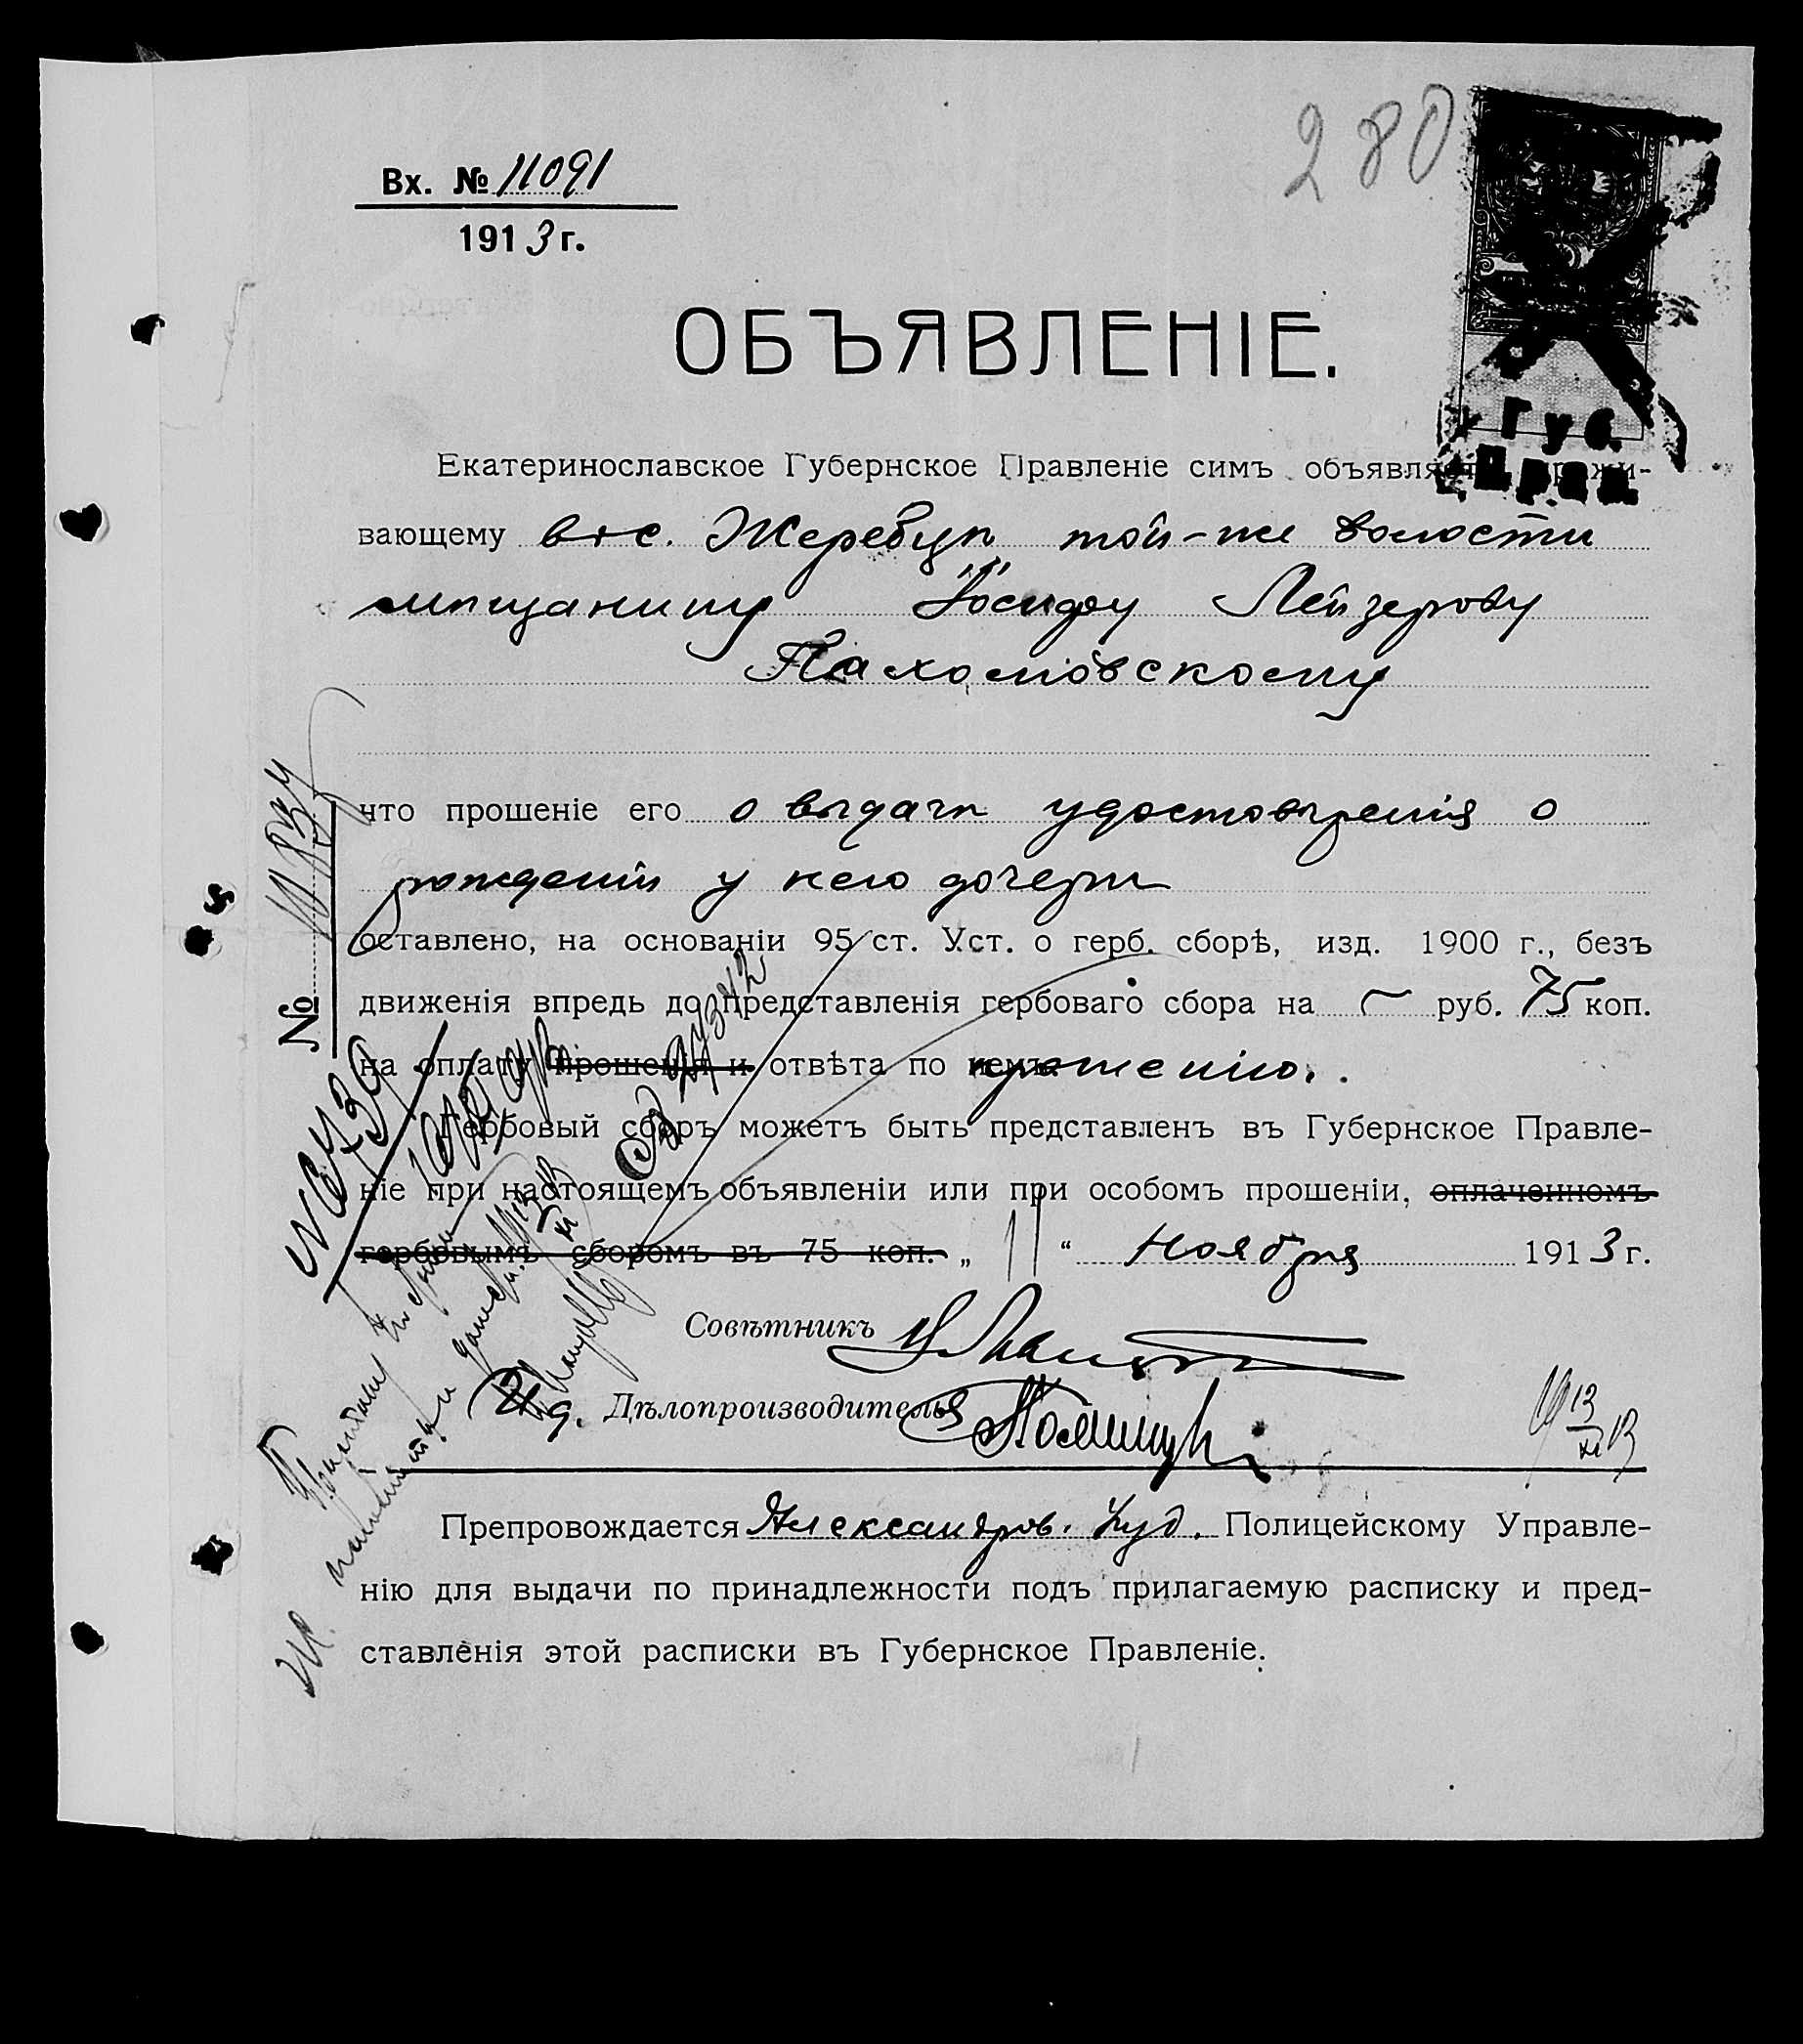 280
Вх. № 11091
1913 г.
ОБЪЯВЛЕНІЕ.
Губ.
Прав.
Екатеринославское Губернское Правленіе симъ объявляетъ прожи-
вающему въ с. Жеребцѣ, той-же волости
мѣщанину Іосифу Лейзерову
Пахомовскому
что прошеніе его о выдачѣ удостовѣренія о
рожденіи у него дочери
оставлено, на основаніи 95 ст. Уст. о герб. сборѣ, изд. 1900 г., безъ
движенія впредь до представленія гербоваго сбора на — руб. 75 коп.
на оплату прошенія и отвѣта по немъ прошенію.
Гербовый сборъ можетъ быть представленъ въ Губернское Правле-
ніе при настоящемъ объявленіи или при особомъ прошеніи, оплаченномъ
гербовымъ сборомъ въ 75 коп. „ 11 “ Ноября 1913 г.
Совѣтникъ
И. д. Дѣлопроизводителя
№
Препровождается Александров. Уѣзд. Полицейскому Управле-
нію для выдачи по принадлежности подъ прилагаемую расписку и пред-
ставленія этой расписки въ Губернское Правленіе.